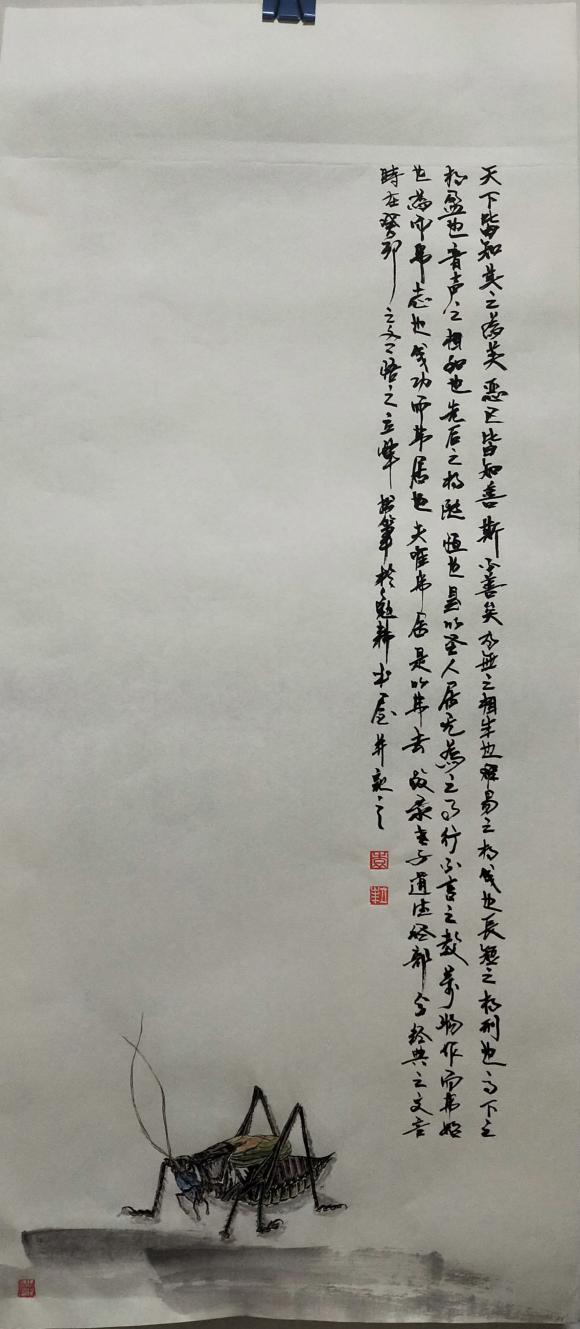 天下皆知其之為美惡已皆知善斯不善矣有無之相生也難易之相成也長短之相刑也高下之
相盈也音声之相和也先后之相随恒也是以圣人居无為之事行不言之教萬物作而弗始
也為而弗志也成功而弗居也夫唯弗居是以弗去故录老子道德经部分经典之文言
時在癸卯之文悟之立峰拙筆於耕书屋并记之